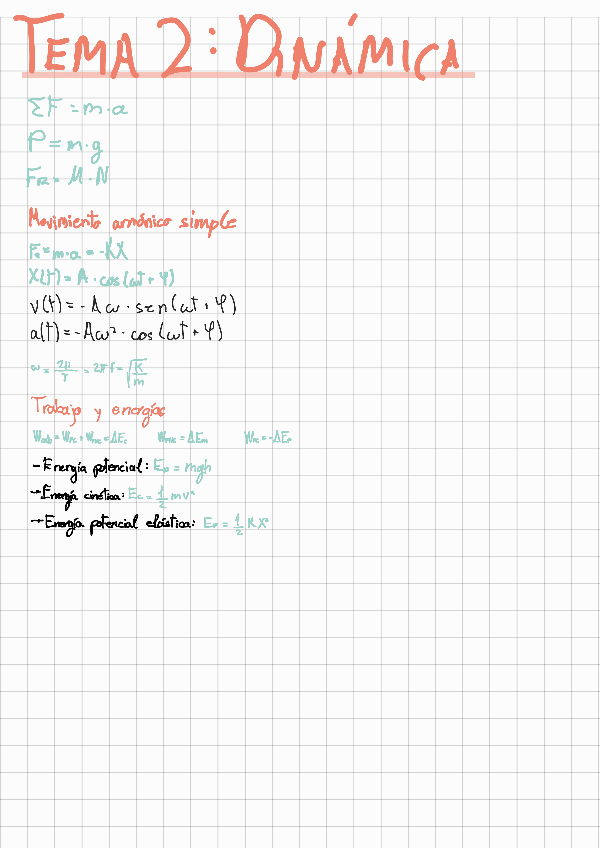 TEMA 2: DINÁMICA
ΣF = m·a
P = m·g
FR = M·N
Movimiento armónico simple
Fe = m·a = -KX
X(t) = A·cos(ωt + φ)
v(t) = -Aω·sen(ωt + φ)
a(t) = -Aω²·cos(ωt + φ)
ω = 2π/T = 2πf = √(K/m)
Trabajo y energías
= WFC + WFNC = ΔEc WFNC = ΔEm WFC = -ΔEp
- Energía potencial: Ep = mgh
→ Energía cinética: Ec = 1/2 mv²
→ Energía potencial elástica: Ee = 1/2 KX²